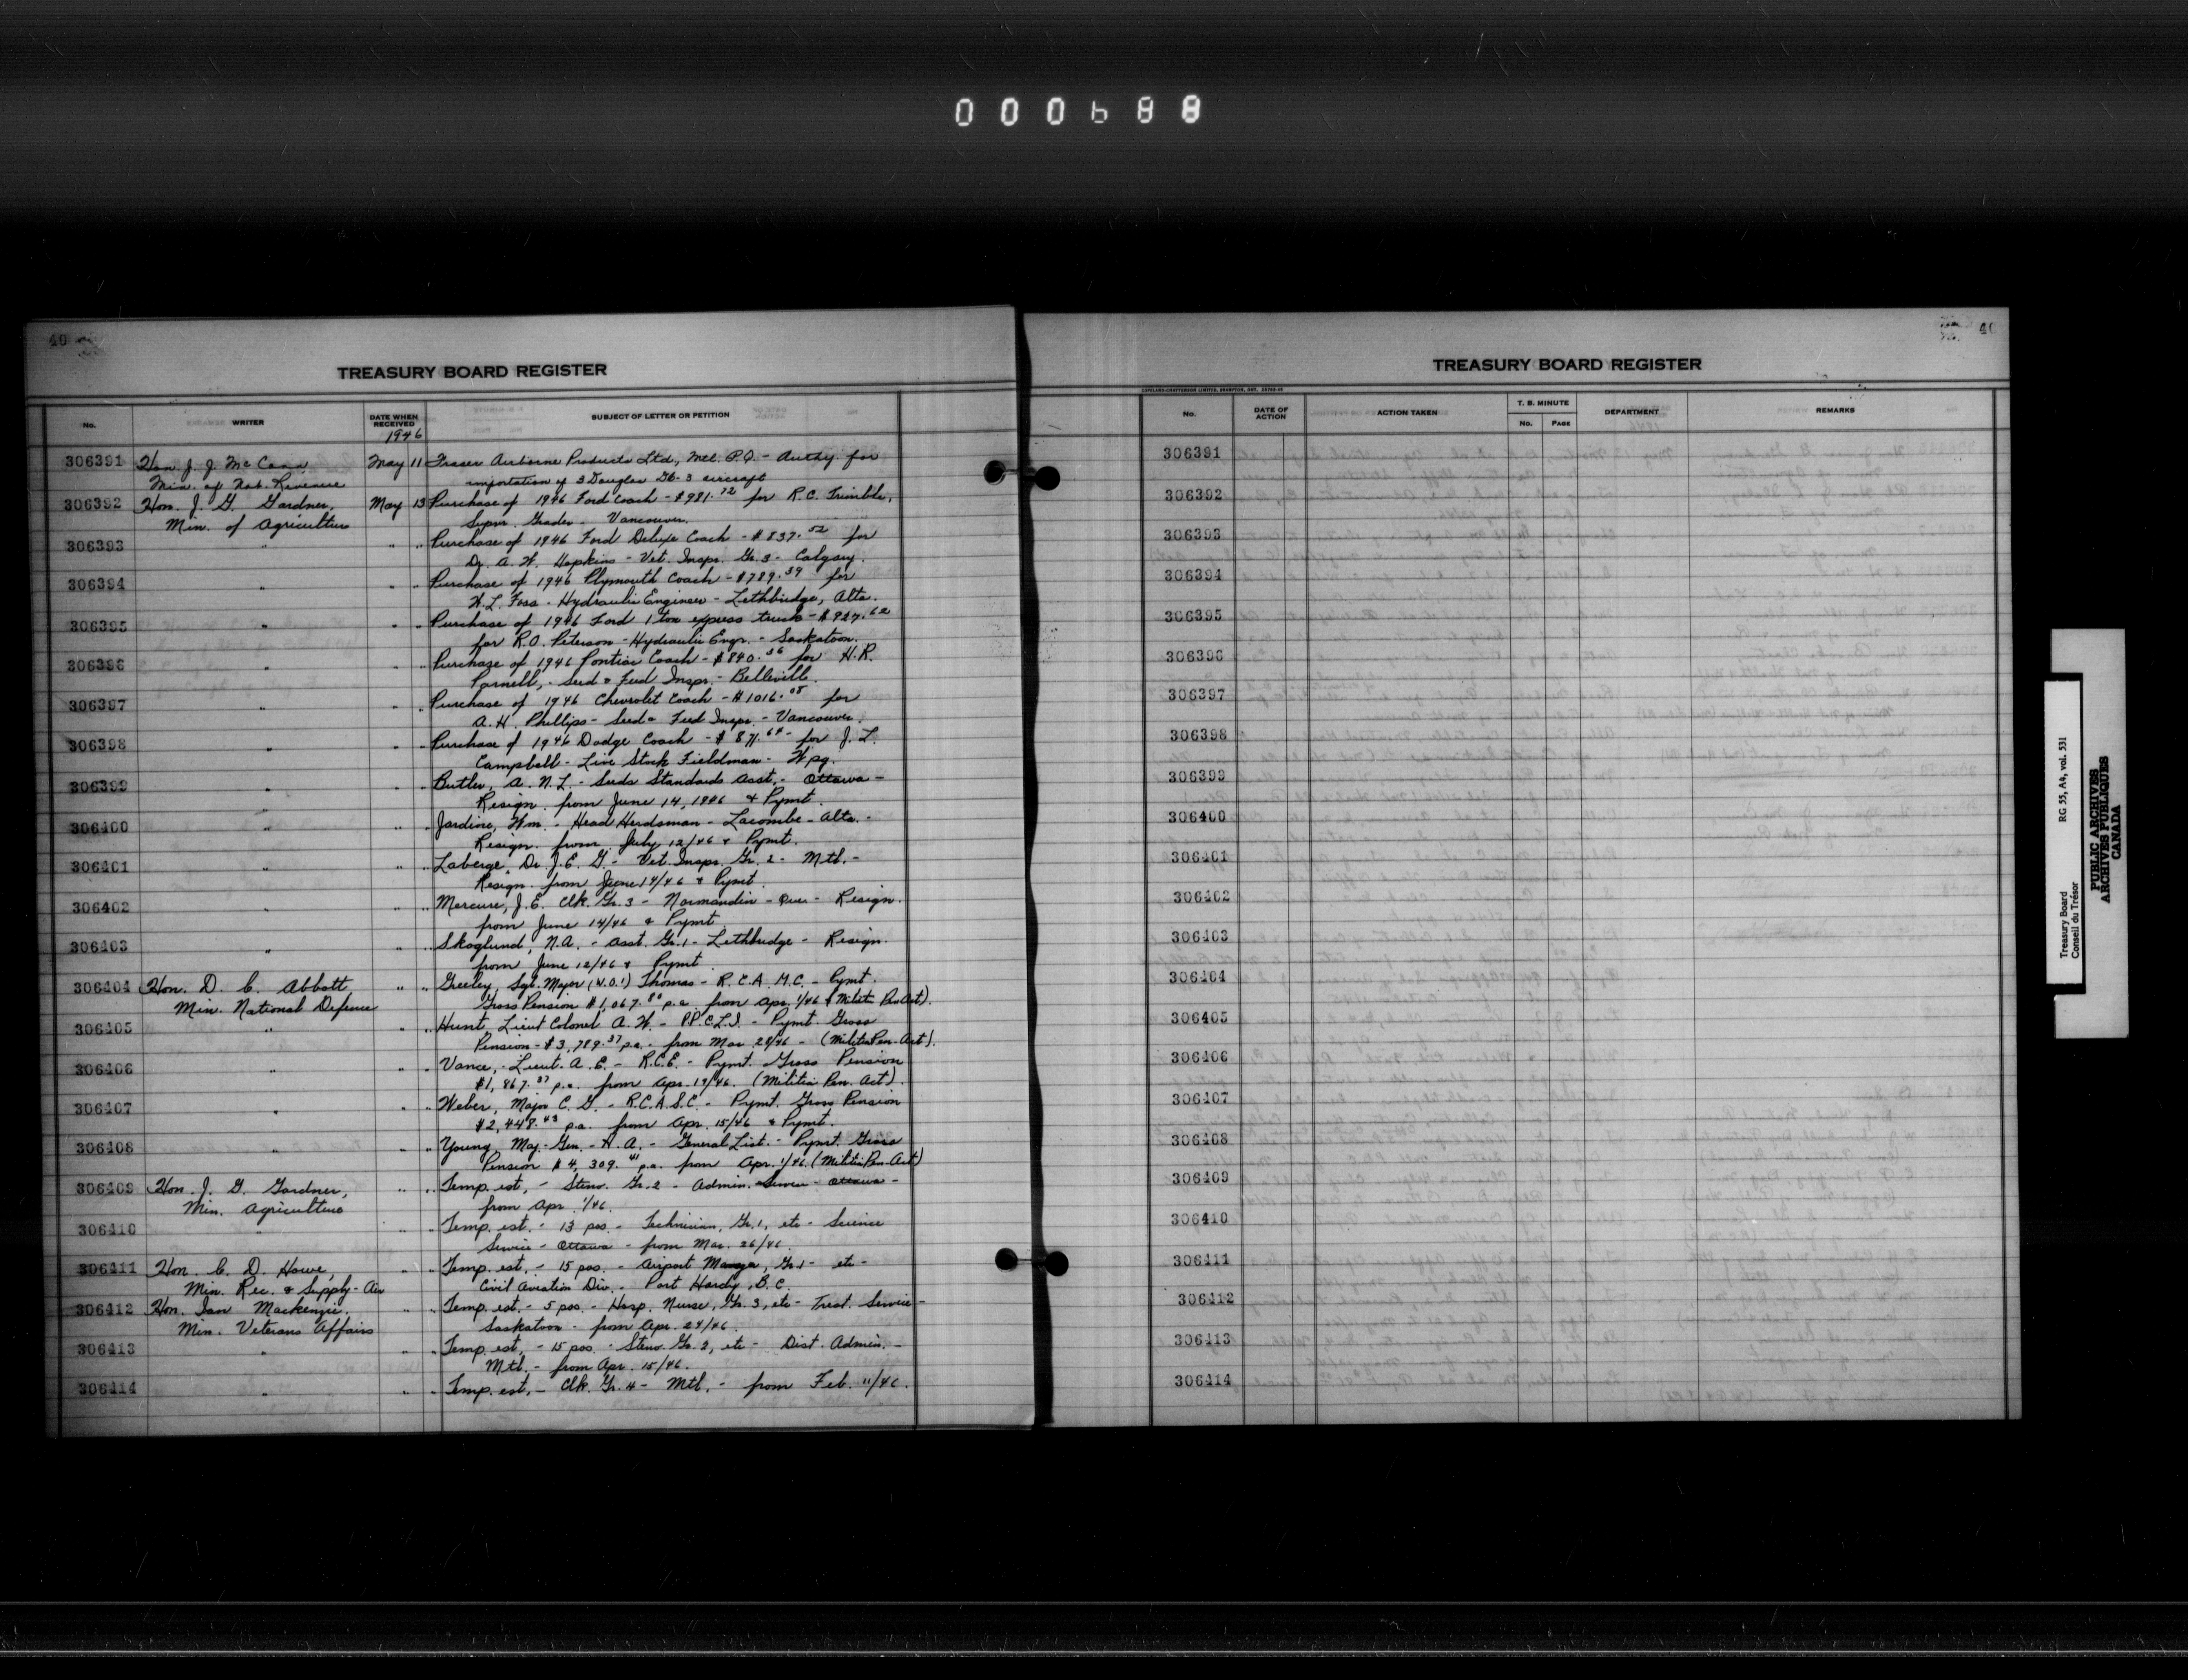 000688
40
TREASURY BOARD REGISTER
No. WRITER DATE WHEN RECEIVED SUBJECT OF LETTER OR PETITION
1946
306391 Hon. J. J. McCann May 11 Fraser Airborne Products Ltd., Mtl. P.Q. - Authy. for
Min. of Nat. Revenue importation of 3 Douglas aircraft
306392 Hon. J. G. Gardner, May 13 Purchase of 1946 Ford Coach - $981.72 for R.C. Trimble,
Min. of Agriculture Supvr. Grader - Vancouver.
306393 " " " Purchase of 1946 Ford Deluxe Coach - $837.52 for
Dr. A. W. Hopkins - Vet. Inspr. Gr. 3 - Calgary.
306394 " " " Purchase of 1946 Plymouth Coach - $789.39 for
W.L. Foss - Hydraulic Engineer - Lethbridge, Alta.
306395 " " " Purchase of 1946 Ford 1 ton express truck - $927.62
for R.O. Peterson - Hydraulic Engr. - Saskatoon.
306396 " " " Purchase of 1946 Pontiac Coach - $840.36 for H.R.
Parnell, - Seed & Feed Inspr. - Belleville.
306397 " " " Purchase of 1946 Chevrolet Coach - $1016.08 for
A.H. Phillips - Seed & Feed Inspr. - Vancouver.
306398 " " " Purchase of 1946 Dodge Coach - $871.64 - for J. L.
Campbell - Live Stock Fieldman - Wpg.
306399 " " " Butler, A. N. L. - Seeds Standards Asst. - Ottawa -
Resign. from June 14, 1946 & Pymt.
306400 " " " Jardine, Wm. - Head Herdsman - Lacombe - Alta. -
Resign. from July 12/46 & Pymt.
306401 " " " Laberge, Dr. J. E. G. - Vet. Inspr. Gr. 2 - Mtl. -
Resign. from June 14/46 & Pymt.
306402 " " " Mercure, J.E. Clk. Gr. 3 - Normandin - Que. - Resign.
from June 14/46 & Pymt
306403 " " " Skoglund, N.A. - Asst. Gr. 1 - Lethbridge - Resign.
from June 12/46 & Pymt
306404 Hon. D. C. Abbott, " " Greeley, Sgt. Major (W.O.1) Thomas - R.C.A.M.C. - Pymt.
Min. National Defence Gross Pension $1,067.80 p.a. from Apr. 1/46 (Militia Pen. Act).
306405 " " " Hunt, Lieut Colonel A. W. - P.P.C.L.I. - Pymt. Gross
Pension - $3,789.37 p.a. - from Mar. 28/46 - (Militia Pen. Act).
306406 " " " Vance, - Lieut. A. E. - R.C.E. - Pymt. Gross Pension
$1,867.37 p.a. from Apr. 19/46. (Militia Pen. Act).
306407 " " " Weber, Major C. G. - R.C.A.S.C. - Pymt. Gross Pension
$2,448.43 p.a. from Apr. 15/46 & Pymt.
306408 " " " Young, Maj.-Gen. - H. A. - General List. - Pymt. Gross
Pension $4,309.41 p.a. from Apr. 1/46. (Militia Pen. Act)
306409 Hon. J. G. Gardner, " " Temp. est. - Steno. Gr. 2 - Admin. Service - Ottawa -
Min. Agriculture from Apr. 1/46.
306410 " " " Temp. est. - 13 pos. - Technician, Gr. 1, etc - Science
Service - Ottawa - from Mar. 26/46.
306411 Hon. C. D. Howe, " " Temp. est. - 15 pos. - Airport Manager, Gr. 1 - etc -
Min. Rec. & Supply - Air Civil Aviation Div. - Port Hardy, B.C.
306412 Hon. Ian Mackenzie, " " Temp. est. - 5 pos. - Hosp. Nurse, Gr. 3, etc - Treat. Service -
Min. Veterans Affairs Saskatoon - from Apr. 24/46.
306413 " " " Temp. est. - 15 pos. - Steno. Gr. 2, etc - Dist. Admin. -
Mtl. - from Apr. 15/46.
306414 " " " Temp. est. - Clk. Gr. 4 - Mtl. - from Feb. 11/46.
40
TREASURY BOARD REGISTER
COPELAND-CHATTERSON LIMITED, BRAMPTON, ONT.
No. DATE OF ACTION ACTION TAKEN T. B. MINUTE No. PAGE DEPARTMENT REMARKS
306391
306392
306393
306394
306395
306396
306397
306398
306399
306400
306401
306402
306403
306404
306405
306406
306407
306408
306409
306410
306411
306412
306413
306414
Treasury Board RG 55, A4, vol. 531
Conseil du Trésor
PUBLIC ARCHIVES
ARCHIVES PUBLIQUES
CANADA